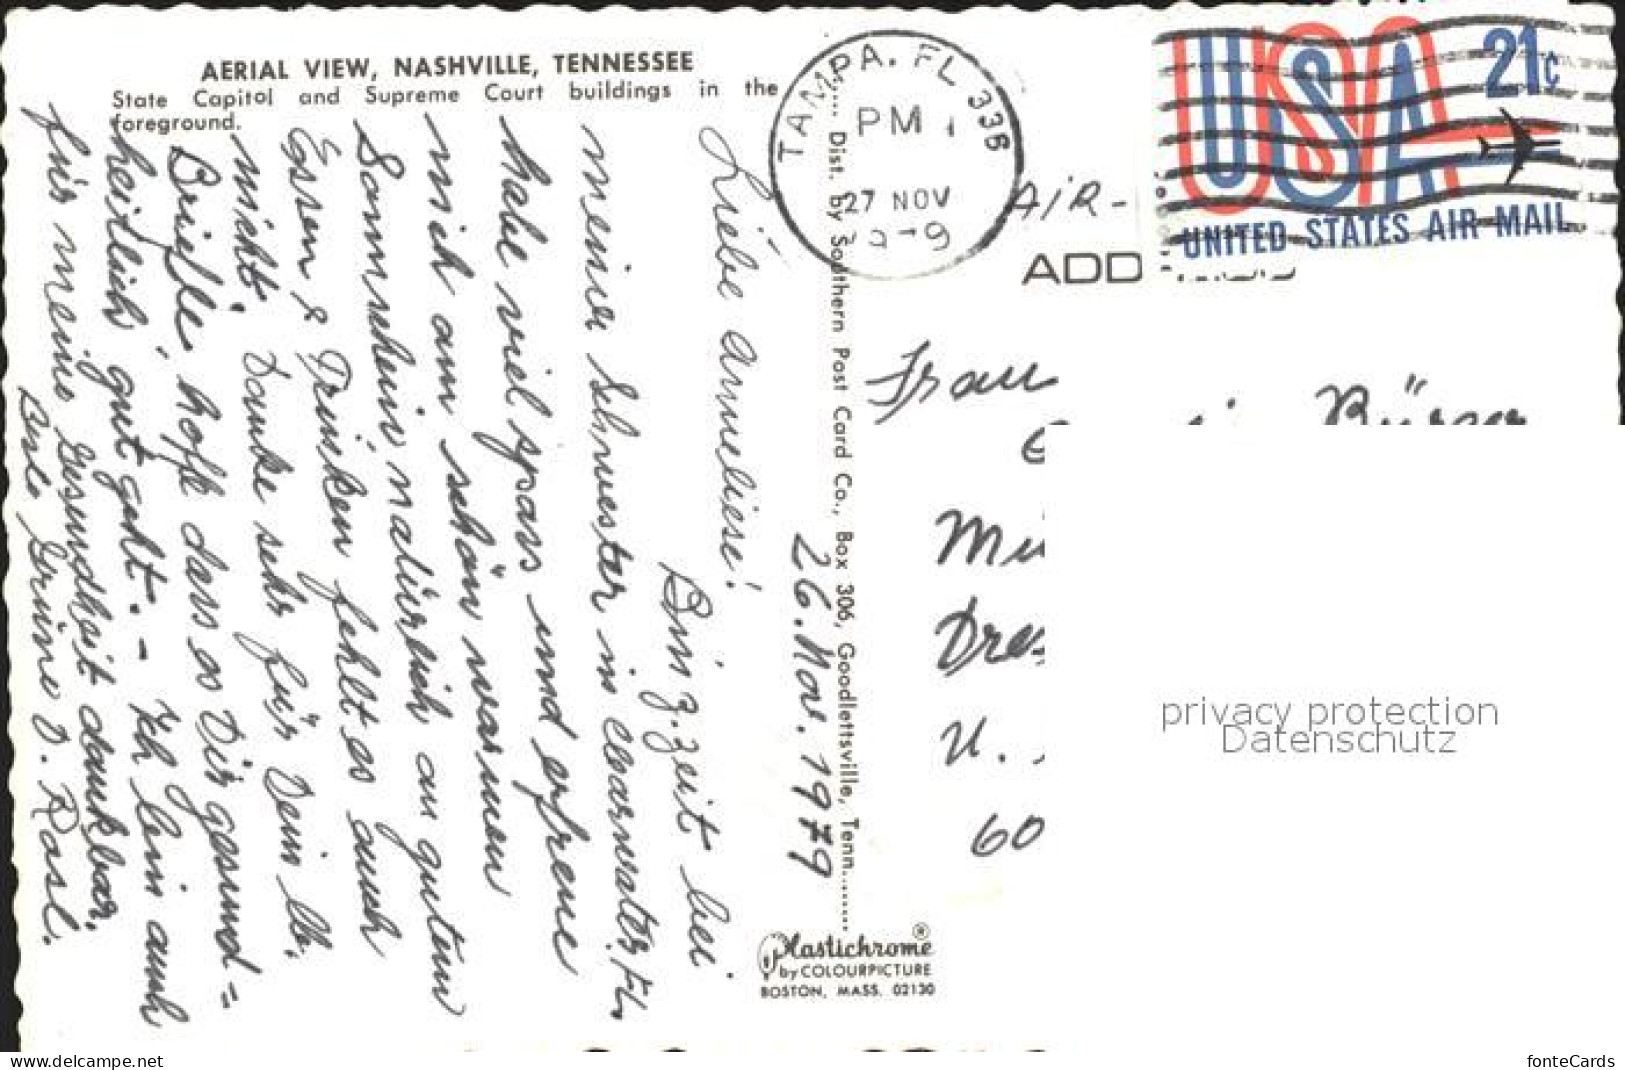 AERIAL VIEW, NASHVILLE, TENNESSEE
State Capitol and Supreme Court buildings in the
foreground.
26. Nov. 1979
Liebe Anneliese!
Bin z. Zeit bei
meiner Schwester in Clearwater, Fl.
habe viel Spass und erfreue
mich am schön warmen
Sonnenschein natürlich an guten
Essen & Trinken fehlt es auch
nicht. Danke sehr für Dein lb.
Brieflein, hoffe dass es Dir gesund=
heitlich gut geht. - Ich bin auch
für meine Gesundheit dankbar.
Grüsse D. Rasl.
..... Dist. by Southern Post Card Co., Box 306, Goodlettsville, Tenn.........
Plastichrome®
by COLOURPICTURE
BOSTON, MASS. 02130
TAMPA. FL 336
PM
27 NOV
AIR-
ADD
USA 21c
UNITED STATES AIR MAIL
Frau
Bürger
Mü
Dre
U.
60
privacy protection
Datenschutz
www.delcampe.net
fonteCards